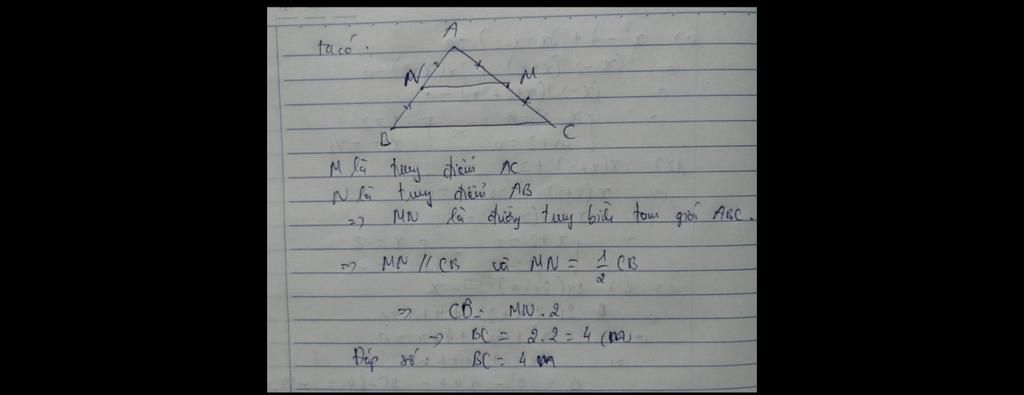 ta có:
A
N M
B C
M là trung điểm AC
N là trung điểm AB
=> MN là đường trung bình tam giác ABC.
=> MN // CB và MN = 1/2 CB
=> CB = MN.2
=> BC = 2.2 = 4 (m)
Đáp số: BC = 4 m